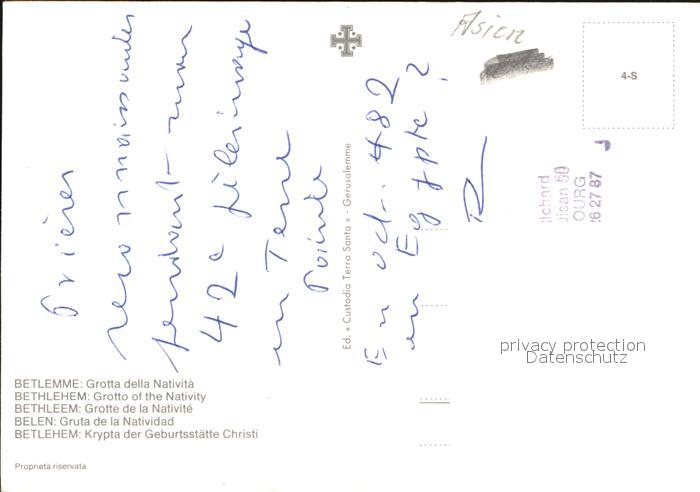 Prières
reconnaissantes
pendant mon
42e pèlerinage
en Terre
Sainte
En oct. 482
en Egypte?
R
Asien
4-S
OURG
26 27 87
Ed. « Custodia Terra Santa » - Gerusalemme
privacy protection
Datenschutz
BETLEMME: Grotta della Natività
BETHLEHEM: Grotto of the Nativity
BETHLEEM: Grotte de la Nativité
BELEN: Gruta de la Natividad
BETLEHEM: Krypta der Geburtsstätte Christi
Proprietà riservata